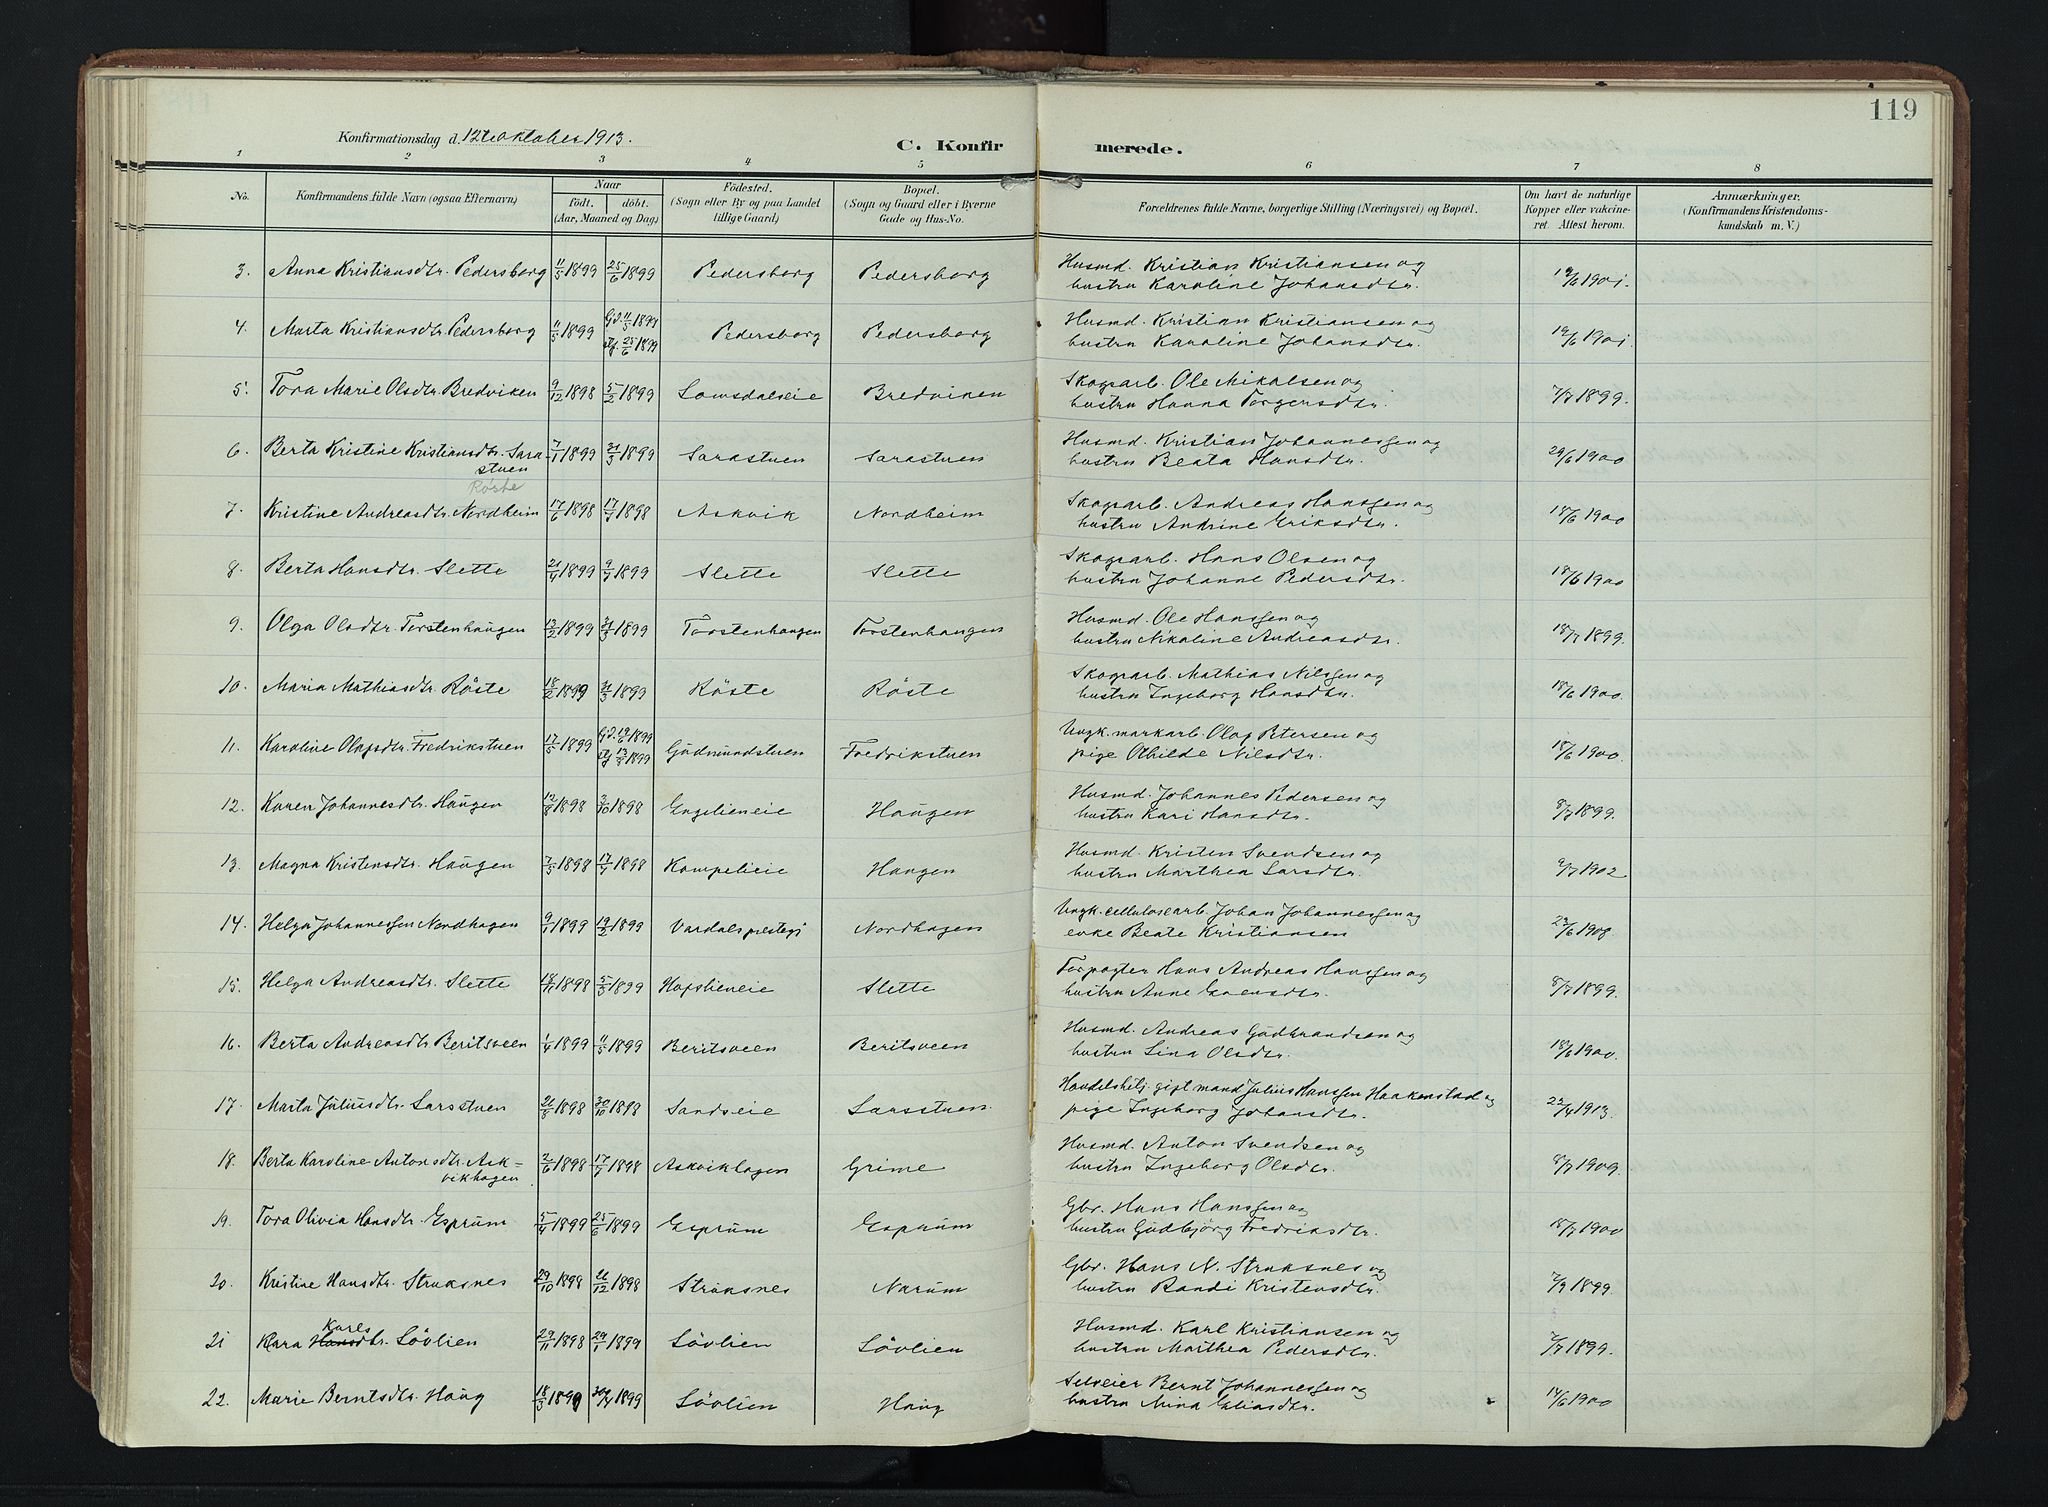 119
Konfirmationsdag d. 12te oktober 1913.
C. Konfir merede.
1 2 3 4 5 6 7 8
No. Konfirmandens fulde Navn (ogsaa Efternavn) Naar födt. döbt. (Aar, Maaned og Dag) Födested. (Sogn eller By og paa Landet tillige Gaard) Bopæl. (Sogn og Gaard eller i Byerne Gade og Hus-No. Forældrenes fulde Navne, borgerlige Stilling (Næringsvei) og Bopæl. Om havt de naturlige Kopper eller vakcineret. Attest herom. Anmærkninger. (Konfirmandens Kristendomskundskab m. V.)
3. Anna Kristiansdtr. Pedersborg 11/5 1899 25/6 1899 Pedersborg Pedersborg Husmd. Kristian Kristiansen og
hustru Karoline Johansdtr. 19/6 1901.
4. Marta Kristiansdtr. Pedersborg 11/5 1899 Gd. 11/5 1899 stf. 25/6 1899 Pedersborg Pedersborg Husmd. Kristian Kristiansen og
hustru Karoline Johansdtr. 19/6 1901
5. Tora Marie Olsdtr. Bredviken 9/12 1898 5/2 1899 Lomsdalseie Bredviken Skogsarb. Ole Mikalsen og
hustru Hanna Torgersdtr. 7/7 1899.
6. Berta Kristine Kristiansdtr. Lara-
stuen 7/1 1899 31/3 1899 Larastuen Larastuen Husmd. Kristian Johannessen og
hustru Beata Hansdtr. 29/6 1900
Röste
7. Kristine Andreasdtr. Nordheim 17/6 1898 17/7 1898 Askvik Nordheim Skogsarb. Andreas Hanssen og
hustru Andrine Eriksdtr. 18/6 1900
8. Berta Hansdtr. Slette 21/4 1899 9/7 1899 Slette Slette Skogsarb. Hans Olsen og
hustru Johanne Pedersdtr. 18/6 1900
9. Olga Olsdtr. Torstenhaugen 13/2 1899 31/3 1899 Torstenhaugen Torstenhaugen Husmd. Ole Hanssen og
hustru Nikoline Andreasdtr. 18/7 1899.
10. Maria Mathiasdtr. Röste 18/2 1899 31/3 1899 Röste Röste Skogsarb. Mathias Nilssen og
hustru Ingeborg Hansdtr. 18/6 1900.
11. Karoline Olafsdtr. Fredrikstuen 17/5 1899 Gd. 19/6 1899 stf 13/8 1899 Gudmundstuen Fredrikstuen Ungk. markarb. Olaf Petersen og
pige Othilde Nilsdtr. 18/6 1900.
12. Karen Johannesdtr. Haugen 12/8 1898 2/10 1898 Engelieneie Haugen Husmd. Johannes Pedersen og
hustru Kari Hansdtr. 8/7 1899.
13. Magna Kristensdtr. Haugen 7/5 1898 17/7 1898 Kompelieie Haugen Husmd. Kristen Svendsen og
hustru Marthea Larsdtr. 9/7 1902
14. Helga Johannessen Nordhagen 9/1 1899 19/2 1899 Vardals prestegj Nordhagen Ungk. cellulosearb. Johan Johannessen og
enke Beate Kristiansen 23/6 1908
15. Helga Andreasdtr. Slette 18/11 1898 5/3 1899 Hofslieneie Slette Forpagter Hans Andreas Hanssen og
hustru Anne Evensdtr. 8/7 1899.
16. Berta Andreasdtr Beritsveen 1/4 1899 11/5 1899 Beritsveen Beritsveen Husmd. Andreas Gudbrandsen og
hustru Lina Olsdtr. 18/6 1900.
17. Marta Juliusdtr. Larsstuen 21/5 1898 30/10 1898 Sandseie Larsstuen. Handelsbetj. gift mand Julius Hanssen Haakenstad og
pige Ingeborg Johansdtr. 22/4 1913.
18. Berta Karoline Antonsdtr. Ask=
vikhagen 2/6 1898 17/7 1898 Askvikhagen Grime Husmd. Anton Svendsen og
hustru Ingeborg Olsdtr. 8/7 1909.
19. Tora Olivia Hansdtr. Esprum 5/4 1899 25/6 1899 Esprum Esprum Gbr. Hans Hanssen og
hustru Gudbjörg Fredriksdtr. 18/7 1900
20. Kristine Hansdtr. Struksnes 29/10 1898 26/12 1898 Struksnes Narum Gbr. Hans N. Struksnes og
hustru Randi Kristensdtr. 7/9 1899.
21 Kara Karls Hansdtr. Lövlien 29/11 1898 29/1 1899 Lövlien Lövlien Husmd. Karl Kristiansen og
hustru Marthea Pedersdtr. 7/7 1899.
22. Marie Berntsdtr. Haug 18/3 1899 30/4 1899 Lövlien Haug Selveier Bernt Johannessen og
hustru Mina Eliasdtr. 14/6 1900